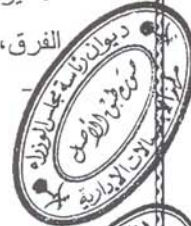 الفرق،
ديوان رئاسة مجلس الوزراء
صورة طبق الأصل
الاتصالات الإدارية